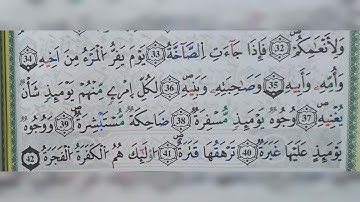 وَلِأَنْعَٰمِكُمْ ۝32 فَإِذَا جَآءَتِ ٱلصَّآخَّةُ ۝33 يَوْمَ يَفِرُّ ٱلْمَرْءُ مِنْ أَخِيهِ ۝34
وَأُمِّهِۦ وَأَبِيهِ ۝35 وَصَٰحِبَتِهِۦ وَبَنِيهِ ۝36 لِكُلِّ ٱمْرِئٍ مِّنْهُمْ يَوْمَئِذٍ شَأْنٌ
يُغْنِيهِ ۝37 وُجُوهٌ يَوْمَئِذٍ مُّسْفِرَةٌ ۝38 ضَاحِكَةٌ مُّسْتَبْشِرَةٌ ۝39 وَوُجُوهٌ
يَوْمَئِذٍ عَلَيْهَا غَبَرَةٌ ۝40 تَرْهَقُهَا قَتَرَةٌ ۝41 أُو۟لَٰٓئِكَ هُمُ ٱلْكَفَرَةُ ٱلْفَجَرَةُ ۝42